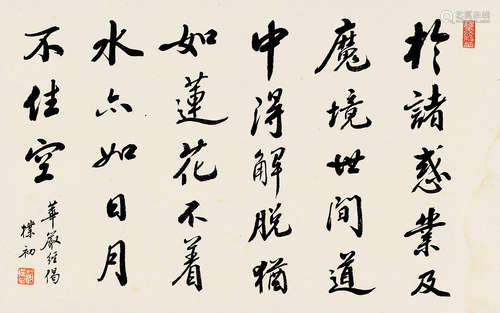 於諸惑業及
魔境世間道
中得解脫猶
如蓮花不着
水亦如日月
不住空
華嚴經偈
樸初